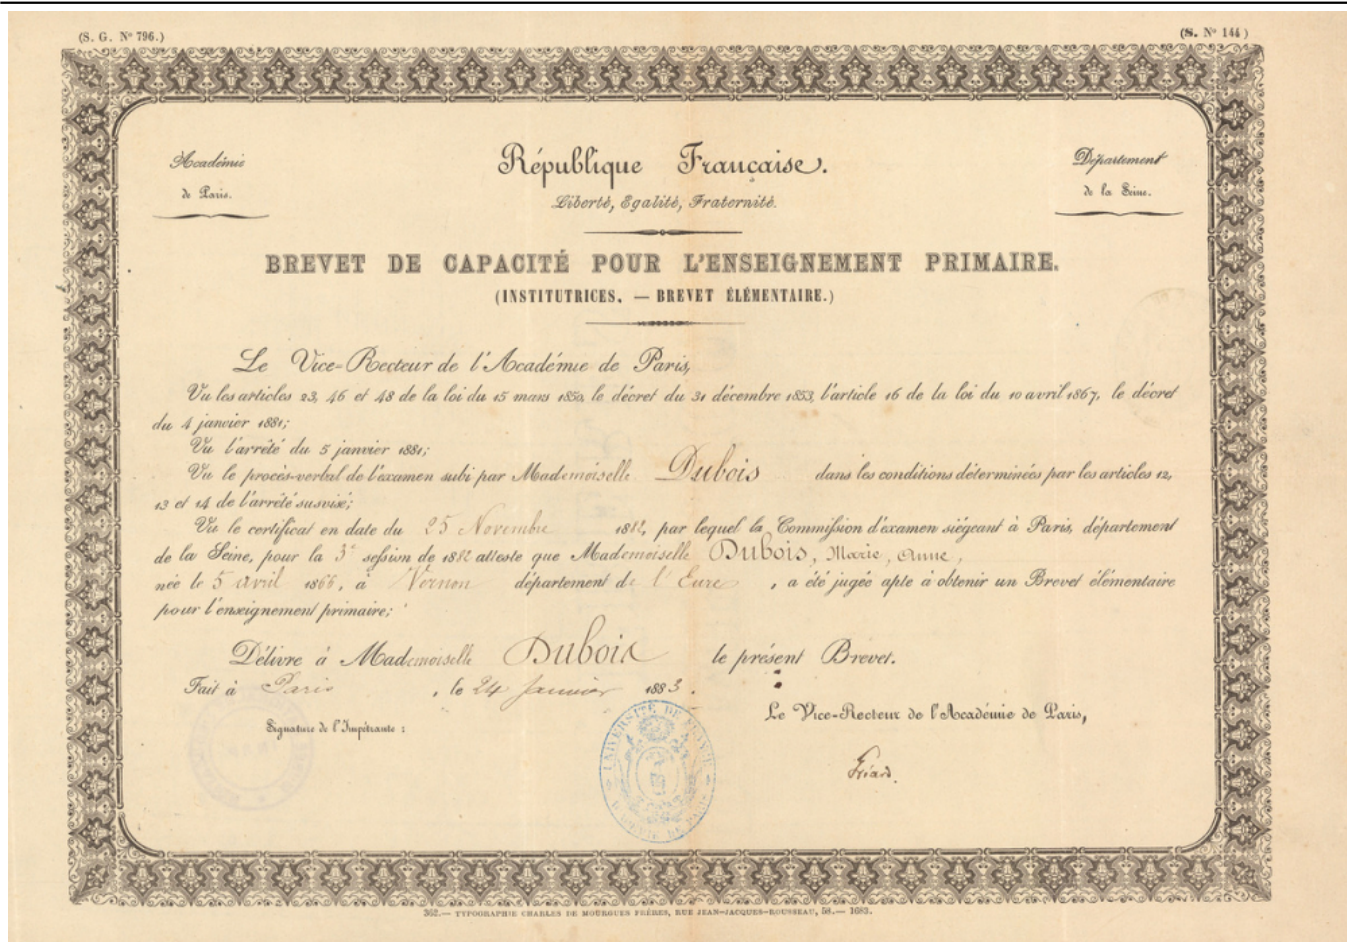 (S. G. Nº 796.)
(S. Nº 144)
Académie
de Paris.
République Française.
Liberté, Egalité, Fraternité.
Département
de la Seine.
BREVET DE CAPACITÉ POUR L'ENSEIGNEMENT PRIMAIRE.
(INSTITUTRICES. — BREVET ÉLÉMENTAIRE.)
Le Vice-Recteur de l'Académie de Paris,
Vu les articles 23, 46 et 48 de la loi du 15 mars 1850, le décret du 31 décembre 1853, l'article 16 de la loi du 10 avril 1867, le décret
du 4 janvier 1881;
Vu l'arrêté du 5 janvier 1881;
Vu le procès-verbal de l'examen subi par Mademoiselle Dubois dans les conditions déterminées par les articles 12,
13 et 14 de l'arrêté susvisé;
Vu le certificat en date du 25 Novembre 1882, par lequel la Commission d'examen siégeant à Paris, département
de la Seine, pour la 3e session de 1882 atteste que Mademoiselle Dubois, Marie, Anne,
née le 5 avril 1866, à Vernon département de l'Eure, a été jugée apte à obtenir un Brevet élémentaire
pour l'enseignement primaire;
Délivre à Mademoiselle Dubois le présent Brevet.
Fait à Paris, le 24 Janvier 1883.
Signature de l'Impétrante :
Le Vice-Recteur de l'Académie de Paris,
UNIVERSITÉ DE FRANCE
DE PARIS
362.— TYPOGRAPHIE CHARLES DE MOURGUES FRÈRES, RUE JEAN-JACQUES-ROUSSEAU, 58.— 1682.